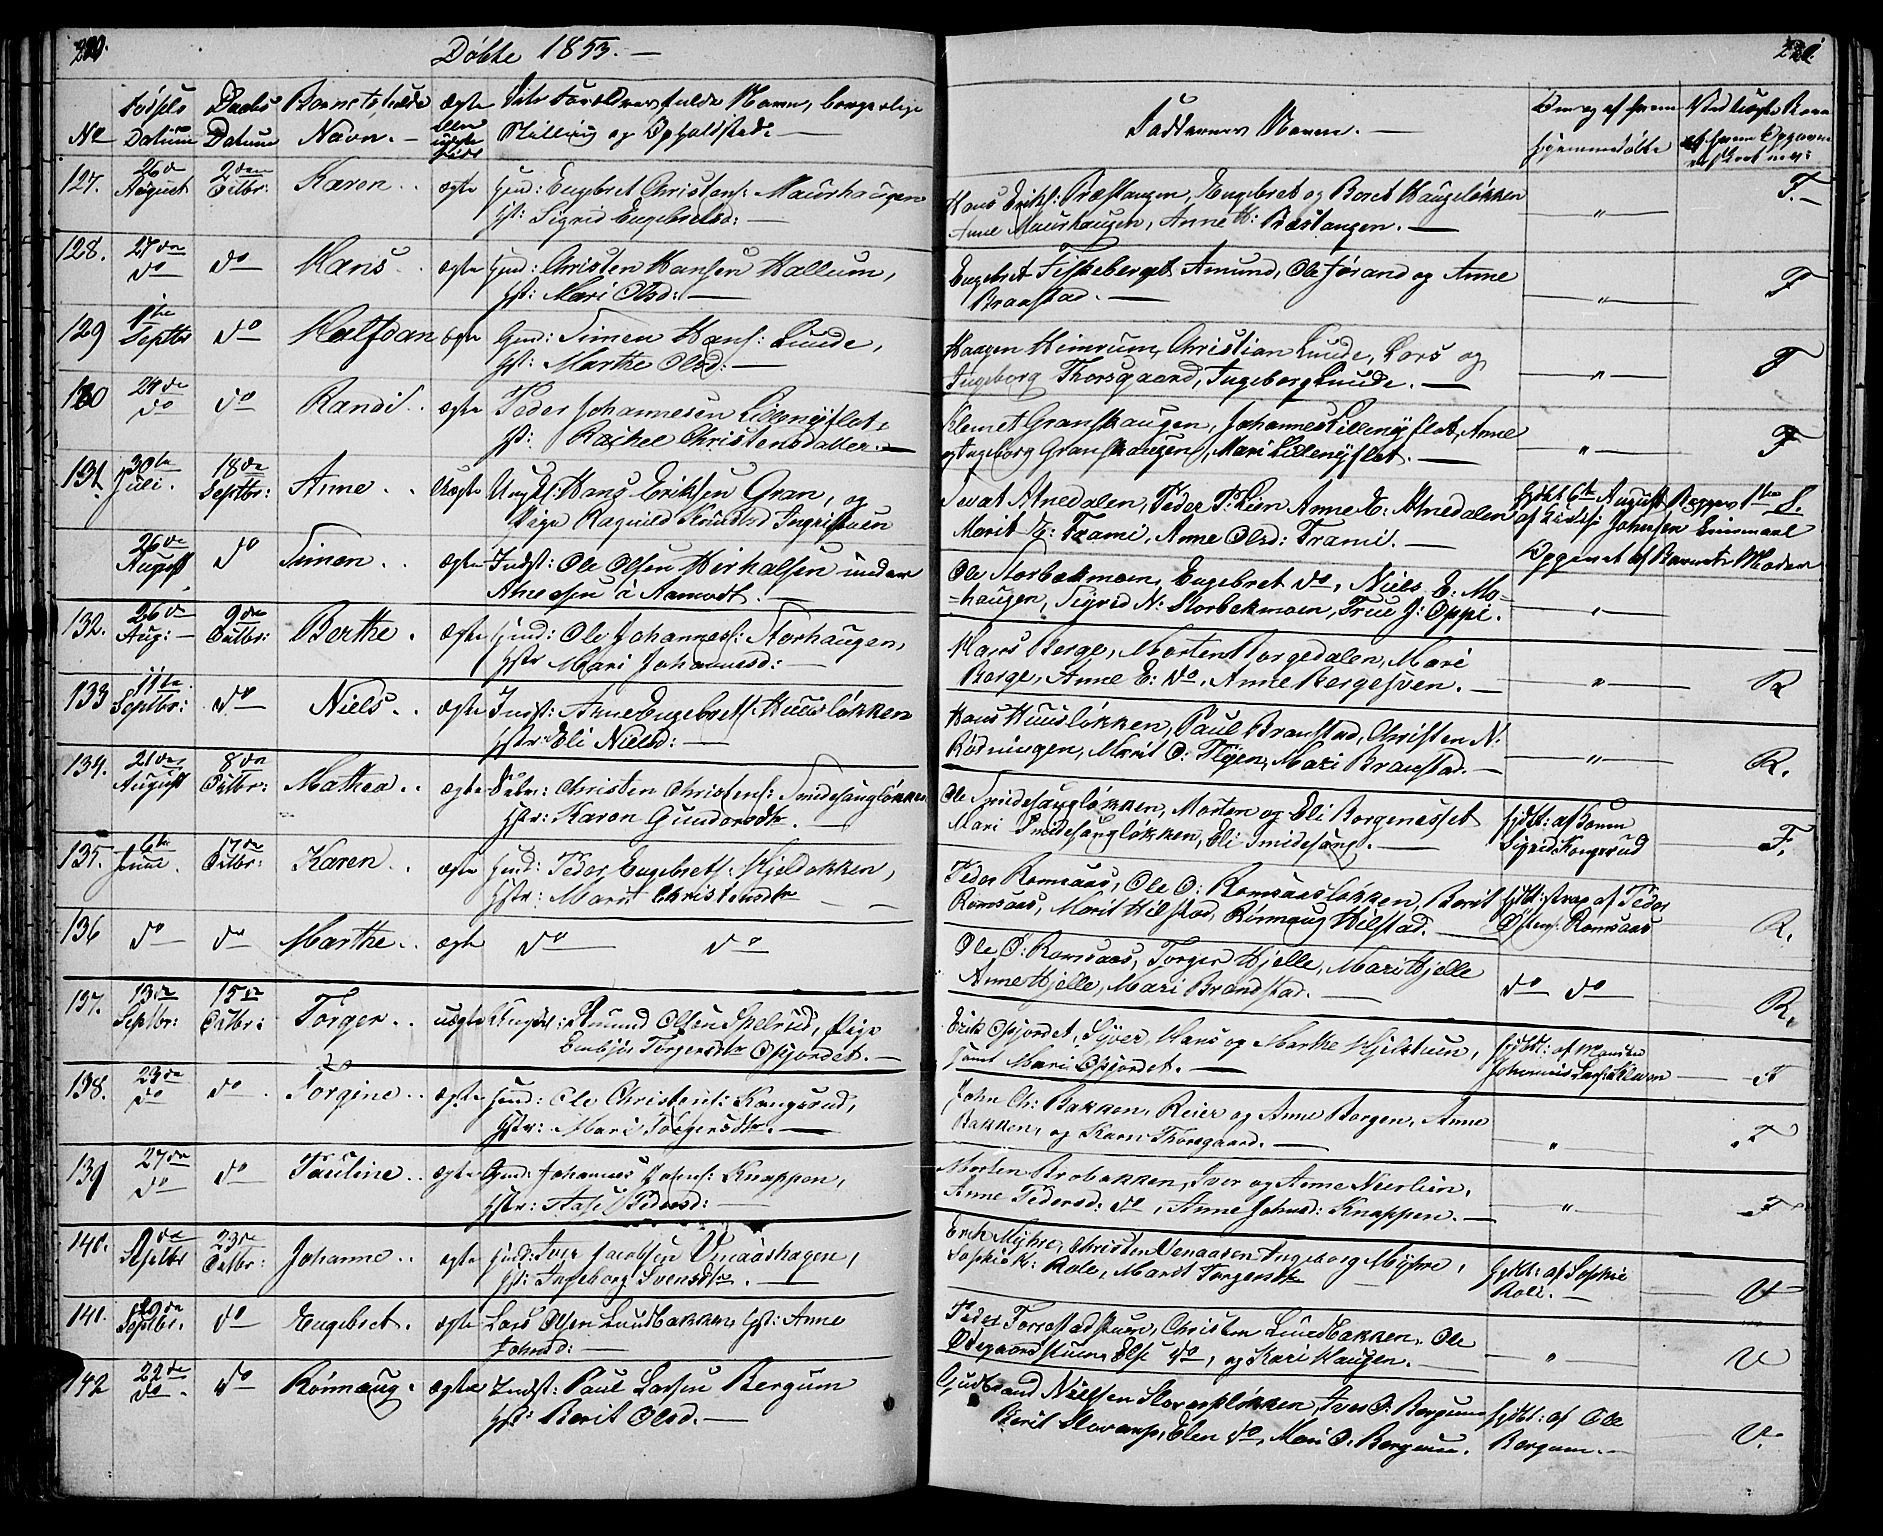 Døbte 1853. —
No
Fødsels Datum
Daabs Datum
Barnets fulde Navn. —
ægte eller uægte født
Dets Forældres fulde Navn, borgerlige Stilling og Opholdsted. —
Faddernes Navn. —
Om og af hvem hjemmedøbte
127. 26de August 2den Octbr: Karen. . ægte Huusmd: Engebret Christens: Maurhaugen
Hst: Sigrid Engebretsd: —
Hans Eriks: Præstangen, Engebret og Boret Haugeløkken
Anne Maurhaugen, Anne H: Præstangen. — " F. —
128. 27de do do Hans. . ægte Hmd: Christen Hansen Hallum,
Hst: Mari Olsd: —
Engebret Fiskeberget Amund, Ole Jørand og Anne
Braastad. — " F
129 1te Septbr do Halfdan ægte Gmd: Simen Hans: Lunde,
Hst: Marthe Olsd: —
Haagen Himrum, Christian Lunde, Lars og
Ingeborg Thorsgaard, Ingeborg Lunde. — " F
130 24de do do Randi. . ægte Peder Johannesen Lillenyflot,
Hst: Rachel Christensdatter. —
Klemet Granshaugen, Johannes Lillenyflot, Anne
og Ingeborg Granshaugen, Mari Lillenyflot. — " F
131. 30te Juli. 18de Septbr: Anne. . Uægte Ungk: Hans Eriksen Gran, og
Pige Ragnild Knudsd Ingristuen
Sivat Atnedalen, Peder P: Lien Anne E: Atnedalen
Marit E: Trami, Anne Olsd: Trami. —
hjdbt 6te August
af Johansen
Opgivet af Barnets Moder
26de August do Simen. . ægte Indst: Ole Olsen Kirkalsen under
Atnesøen i Aamodt. —
Ole Storbækmoen, Engebret do, Niels E: Mo-
-haugen, Sigrid N: Storbekmoen, True J: Oppi. "
132. 26de Aug: — 9de Octbr: Berthe. ægte Hmd: Ole Johanness: Storhaugen,
Hstr Mari Johannesd: —
Hans Berge, Morten Borgedalen, Mari
Berge, Anne E: do, Anne Bergesven. — " R
133 11te Septbr: do Niels. . ægte Indst: Arne Engebrets: Huusløkken
Hstr: Eli Nielsd: —
Hans Huusløkken, Paul Branstad, Christen N:
Rødningen, Marit O: Flyen, Mari Branstad. — " R.
134. 21de August 8de Octbr: Mathea. . ægte Christen Christens: Smidesangløkken
Hstr: Karen Gundersdtr. —
Ole Smidesangløkken, Morten og Eli Borgenesset
Mari Smidesangløkken, Eli Smidesang. —
hjdbt: af Konen
Sigrid Kongsrud F.
135. 6te Juni. 17de Octbr: Karen. . ægte Hmd: Peder Engebrets: Hjeldokken,
Hstr: Marit Christensdtr —
Peder Romsaas, Ole O: Romsaasløkken, Berit
Romsaas, Marit Hilstad, Rønnaug Hilstad. —
hjdbt: strax af Peder
Østens: Romsaas R.
136 do do Marthe. . ægte do do
Ole O: Romsaas, Torger Hjelle, Mari Hjelle
Anne Hjelle, Mari Brandstad. —
do do R.
137. 13de Septbr: 15de Octbr: Torger. . uægte Ungkl: Amund Olsen Spelrud, Pige
Embjør Torgersdtr Opjordet. —
Erik Opjordet, Syver, Hans og Marthe Hjelstuen,
samt Mari Opjordet. —
hjdbt: af Manden
Johannes F
138. 23de do do Torgine. . ægte Hmd: Ole Christens: Kongsrud,
Hstr: Mari Torgersdtr. —
John Ch: Bakken, Reier og Anne Borgen, Anne
Bakken, og Karen Thorsgaard. — " F
139 27de do do Pauline. . ægte Gmd: Johannes Johns: Knappen,
Hstr: Aase Pedersd: —
Morten Brobakken, Iver og Anne Neerlien,
Anne Pedersd: do, Anne Johnsd: Knappen. — " F
140. 9de Septbr 23de Octbr: Johanne. . ægte Hmd: Iver Jacobsen Venaashagen,
Hst: Ingeborg Svensdtr. —
Erik Myhre, Christen Venaasen Ingeborg Myhre,
Sophie K: Role, Marit Torgersdtr
hjdbt: af Sophie
Role. — V
141. 20de Septbr. do Engebret. ægte Lars Olsen Lundbakken, Hst: Anne
Johnsd: —
Peder Forrestadstuen, Christen Lundbakken, Ole
Ødegaardstuen, Else do, og Kari Haugen. — " V
142 22de do. do Rønnaug. ægte Indst: Paul Larsen Bergum
Hst: Berit Olsd. —
Gudbrand Nielsen Storarpløkken, Iver O: Bergum
Berit Storarp, Elen do, Mari O: Bergum.
hjdbt: af Ole
Bergum. — V.